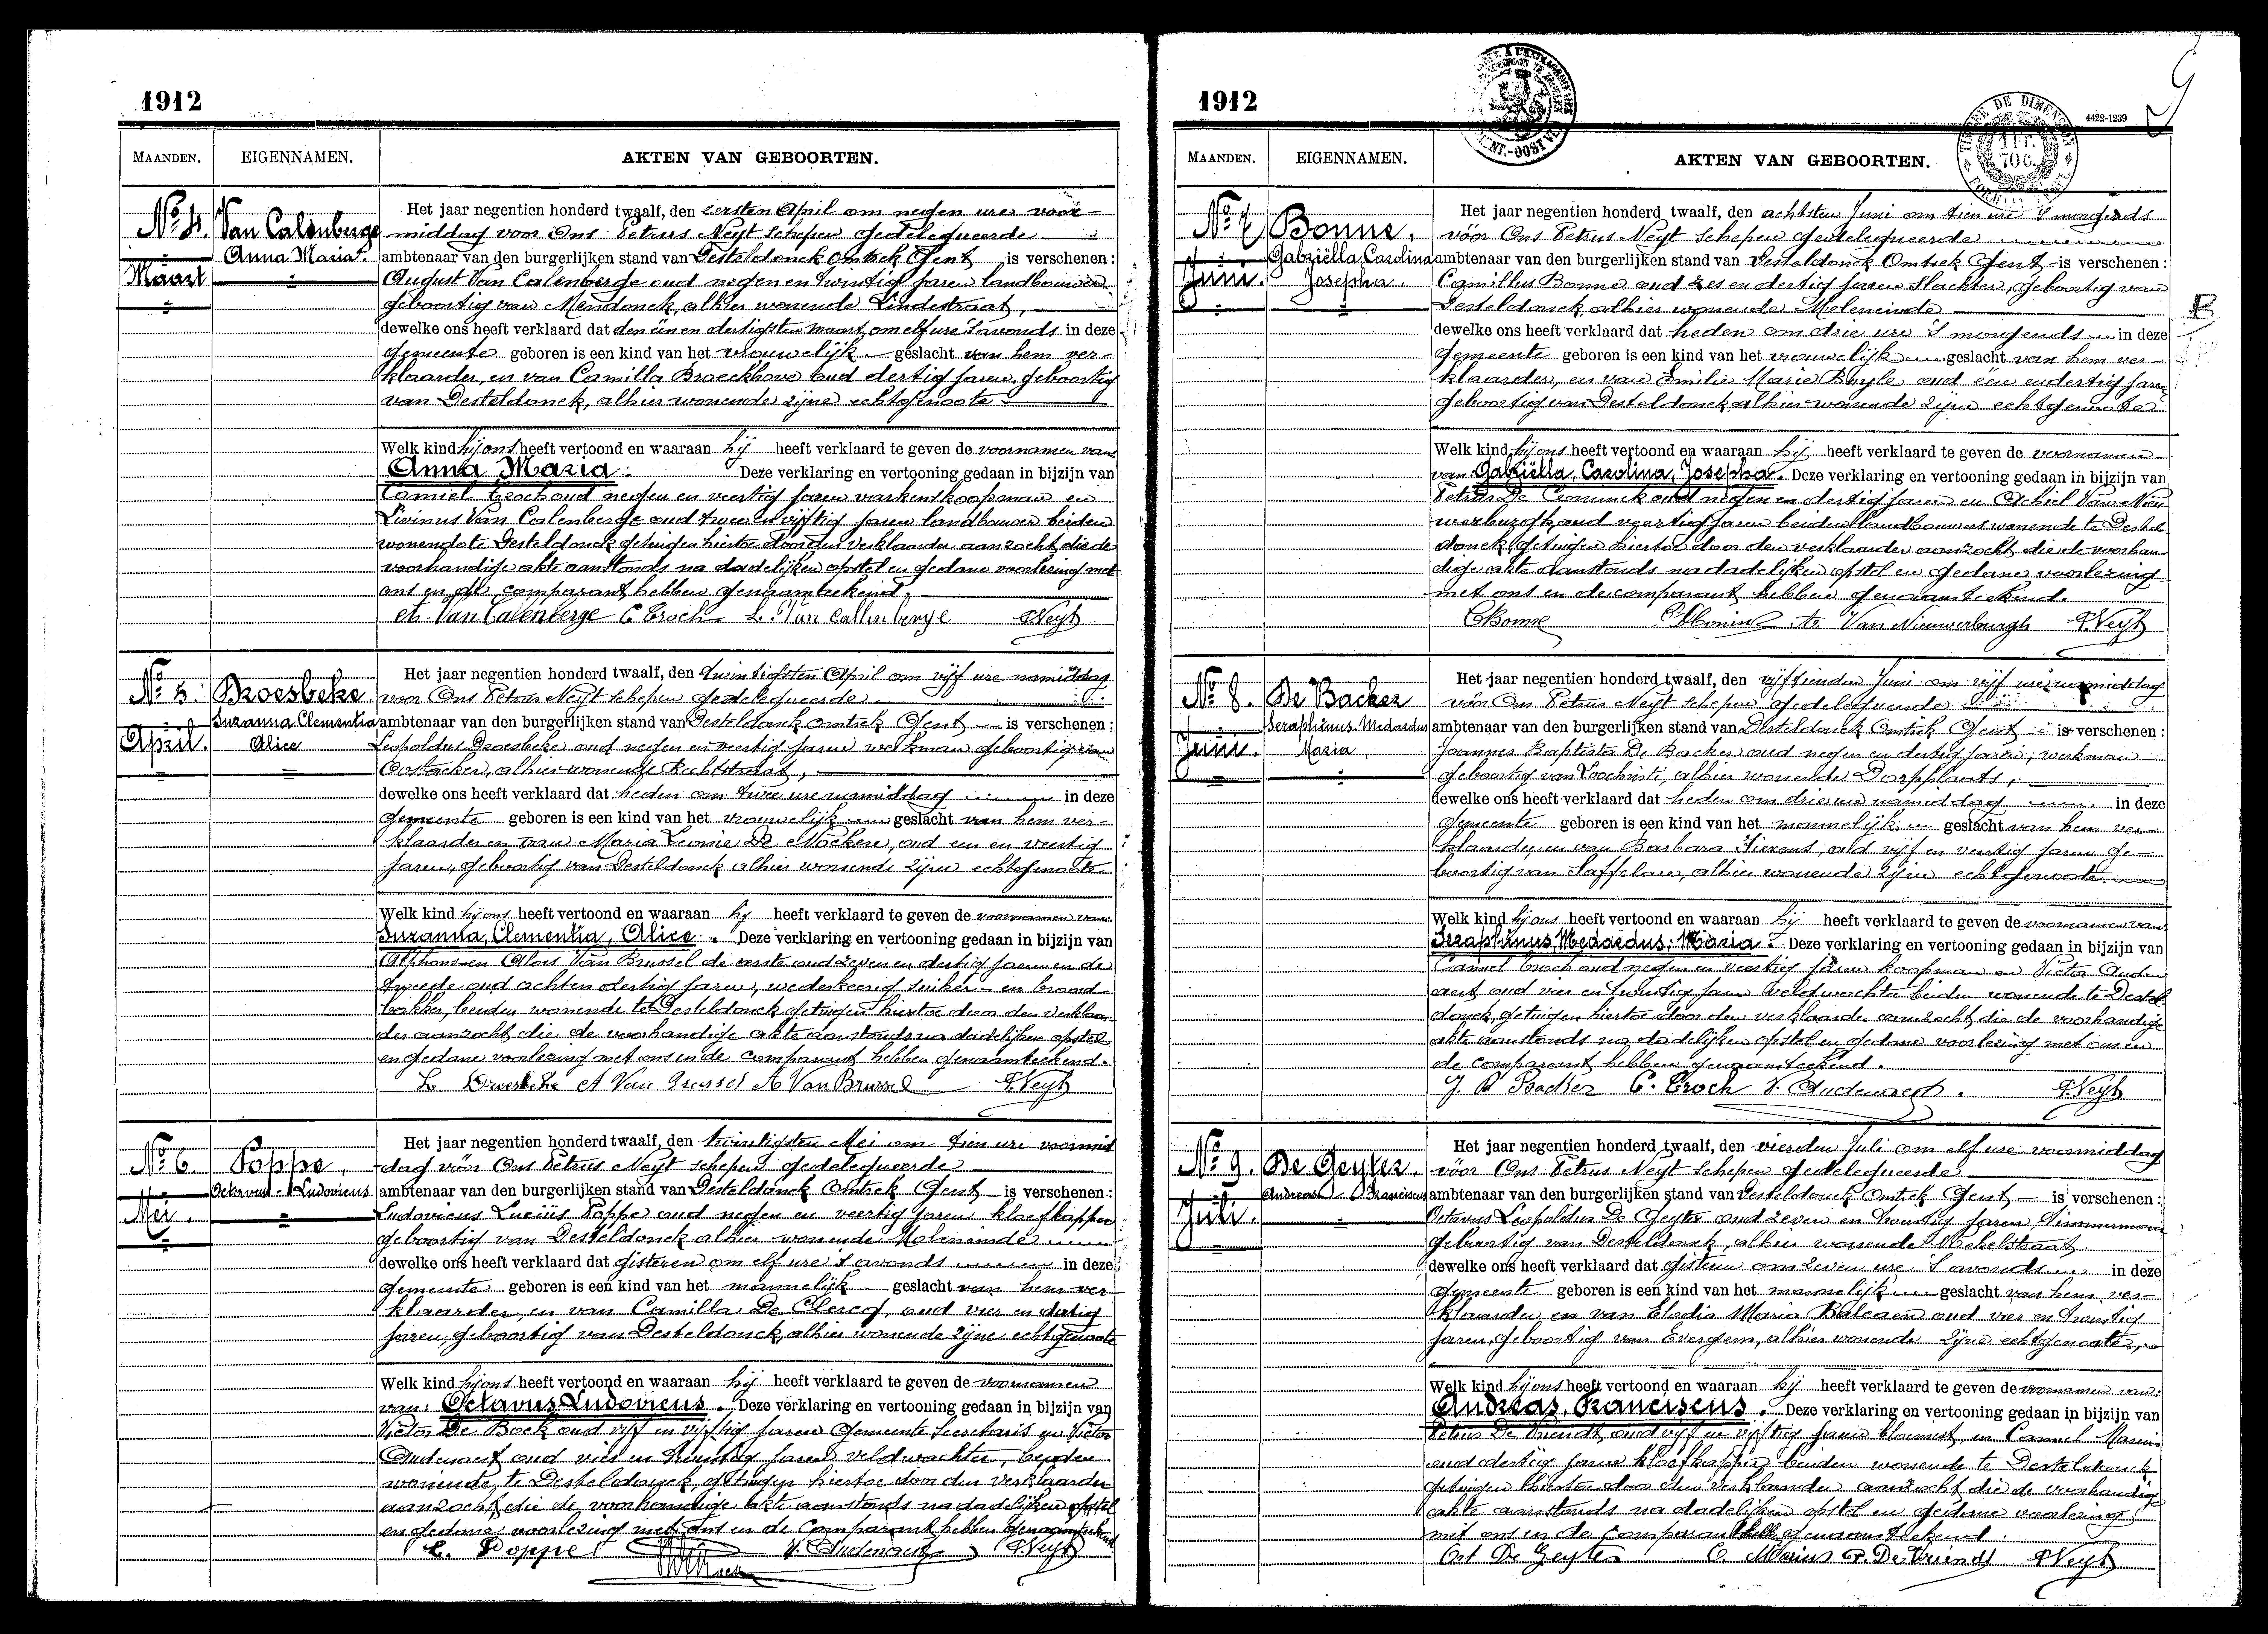 1912
MAANDEN. EIGENNAMEN. AKTEN VAN GEBOORTEN.
No 4. Van Calenberge
Anna Maria.
Maart
Het jaar negentien honderd twaalf, den eersten April om negen ure voor-
middag voor Ons Petrus Neyt Schepen Gedelegueerde
ambtenaar van den burgerlijken stand van Desteldonck Omtrek Gent is verschenen:
August Van Calenberge oud negen en twintig jaren landbouwer
geboortig van Mendonck, alhier wonende Lindestraat,
dewelke ons heeft verklaard dat den één en dertigsten maart, om elf ure 's avonds in deze
Gemeente geboren is een kind van het vrouwelijk geslacht van hem ver-
klaarder, en van Camilla Broeckhove oud dertig jaren, geboortig
van Desteldonck, alhier wonende zijne echtgenoote
Welk kind hij ons heeft vertoond en waaraan hij heeft verklaard te geven de voornamen van
Anna Maria. Deze verklaring en vertooning gedaan in bijzijn van
Camiel Troch oud negen en veertig jaren varkenskoopman en
Livinus Van Calenberge oud twee en vijftig jaren landbouwer beiden
wonende te Desteldonck getuigen hiertoe door den verklaarder aanzocht die de
voorhandige akte aanstonds na dadelijken opstel en gedane voorlezing met
ons en de comparant hebben genaamteekend.
A. Van Calenberge C Troch L. Van Callenberge PNeyt
No 5. Droesbeke
Suzanna Clementia
Alice
April.
Het jaar negentien honderd twaalf, den twintigsten April om vijf ure namiddag
voor Ons Petrus Neyt schepen gedelegueerde
ambtenaar van den burgerlijken stand van Desteldonck omtrek Gent is verschenen:
Leopoldus Droesbeke oud negen en veertig jaren werkman geboortig van
Oostacker, alhier wonende Rechtstraat,
dewelke ons heeft verklaard dat heden om twee ure namiddag in deze
Gemeente geboren is een kind van het vrouwelijk geslacht van hem ver-
klaarder en van Maria Leonie De Nockere, oud een en veertig
jaren, geboortig van Desteldonck alhier wonende zijne echtgenoote
Welk kind hij ons heeft vertoond en waaraan hij heeft verklaard te geven de voornamen van
Suzanna, Clementia, Alice. Deze verklaring en vertooning gedaan in bijzijn van
Alphons en Alois Van Brussel de eerste oud zeven en dertig jaren en de
tweede oud acht en dertig jaren, wederkeerig suiker- en brood-
bakker, beiden wonende te Desteldonck getuigen hiertoe door den verklaar-
der aanzocht die de voorhandige akte aanstonds na dadelijken opstel
en gedane voorlezing met ons en de comparant hebben genaamteekend.
L. Droesbeke A Van Brussel A Van Brussel PNeyt
No 6 Poppe,
Octavus Ludovicus
Mei.
Het jaar negentien honderd twaalf, den twintigsten Mei om tien ure voormid
dag vóór Ons Petrus Neyt schepen gedelegueerde
ambtenaar van den burgerlijken stand van Desteldonck Omtrek Gent is verschenen:
Ludovicus Lucius Poppe oud negen en veertig jaren kloefkapper
geboortig van Desteldonck alhier wonende Moleneinde
dewelke ons heeft verklaard dat gisteren om elf ure 's avonds in deze
Gemeente geboren is een kind van het mannelijk geslacht van hem ver-
klaarder, en van Camilla De Clercq, oud vier en dertig
jaren, geboortig van Desteldonck, alhier wonende zijne echtgenoote
Welk kind hij ons heeft vertoond en waaraan hij heeft verklaard te geven de voornamen
van: Octavus Ludovicus. Deze verklaring en vertooning gedaan in bijzijn van
Victor De Bock oud vijf en vijftig jaren Gemeente Secretaris en Victor
Audenaert oud vier en twintig jaren veldwachter, beiden
wonende te Desteldonck getuigen hiertoe door den verklaarder
aanzocht, die de voorhandige akte aanstonds na dadelijken opstel
en gedane voorlezing met ons en de comparant hebben genaamteekend
L. Poppe V. Audenaert PNeyt
1912
4422-1239
9
MAANDEN. EIGENNAMEN. AKTEN VAN GEBOORTEN.
No 7 Bonne.
Gabriëlla, Carolina
Josepha.
Juni.
Het jaar negentien honderd twaalf, den achtsten Juni om tien ure 's morgends
vóór Ons Petrus Neyt Schepen Gedelegueerde
ambtenaar van den burgerlijken stand van Desteldonck Omtrek Gent is verschenen:
Camillus Bonne oud zes en dertig jaren Slachter, geboortig van
Desteldonck alhier wonende Moleneinde
dewelke ons heeft verklaard dat heden om drie ure 's morgends in deze
Gemeente geboren is een kind van het vrouwelijk geslacht van hem ver-
klaarder, en van Emilie Marie Buyle oud één en dertig jaren
geboortig van Desteldonck alhier wonende zijne echtgenoote
Welk kind hij ons heeft vertoond en waaraan hij heeft verklaard te geven de voornamen
van: Gabriëlla, Carolina, Josepha. Deze verklaring en vertooning gedaan in bijzijn van
Petrus De Coninck oud negen en dertig jaren en Achiel Van Nieu
werburgh oud veertig jaren beiden landbouwers wonende te Destel
donck, getuigen hiertoe door den verklaarder aanzocht die de voorhan
dige akte aanstonds na dadelijken opstel en gedane voorlezing
met ons en de comparant hebben genaamteekend.
CBonne A. Van Nieuwerburgh PNeyt
No 8. De Backer
Seraphinus Medardus
Maria.
Juni.
Het jaar negentien honderd twaalf, den vijftienden Juni om vijf ure namiddag
vóór Ons Petrus Neyt schepen gedelegueerde
ambtenaar van den burgerlijken stand van Desteldonck Omtrek Gent is verschenen:
Joannes Baptista De Backer oud negen en dertig jaren, werkman
geboortig van Loochristi, alhier wonende Dorpplaats,
dewelke ons heeft verklaard dat heden om drie ure namiddag in deze
Gemeente geboren is een kind van het mannelijk geslacht van hem ver-
klaarder, en van Barbara Fierens, oud vijf en veertig jaren ge-
boortig van Saffelare, alhier wonende zijne echtgenoote
Welk kind hij ons heeft vertoond en waaraan hij heeft verklaard te geven de voornamen van
Seraphinus, Medardus, Maria. Deze verklaring en vertooning gedaan in bijzijn van
Camiel Troch oud negen en veertig jaren koopman en Victor Auden
aert oud vier en twintig jaren veldwachter beiden wonende te Destel
donck, getuigen hiertoe door den verklaarder aanzocht, die de voorhandige
akte aanstonds na dadelijken opstel en gedane voorlezing met ons en
de comparant hebben genaamteekend.
J B Backer C. Troch V. Audenaert. PNeyt
No 9. De Geyter.
Andreas Franciscus
Juli.
Het jaar negentien honderd twaalf, den vierden Juli om elf ure voormiddag
vóór Ons Petrus Neyt Schepen Gedelegueerde
ambtenaar van den burgerlijken stand van Desteldonck Omtrek Gent is verschenen:
Octavus Leopoldus De Geyter oud zeven en twintig jaren, timmerman
geboortig van Desteldonck, alhier wonende
dewelke ons heeft verklaard dat gisteren om zeven ure 's avonds in deze
Gemeente geboren is een kind van het mannelijk geslacht van hem ver-
klaarder en van Elodia Maria Balcaen oud vier en twintig
jaren, geboortig van Evergem, alhier wonende zijne echtgenoote,
Welk kind hij ons heeft vertoond en waaraan hij heeft verklaard te geven de voornamen van:
Andreas, Franciscus. Deze verklaring en vertooning gedaan in bijzijn van
Petrus De Vriendt, oud vijf en vijftig jaren bloemist, en Camiel Marin
oud dertig jaren kloefkapper beiden wonende te Desteldonck
getuigen hiertoe door den verklaarder aanzocht die de voorhandige
akte aanstonds na dadelijken opstel en gedane voorlezing
met ons en de comparant genaamteekend.
Oct De Geyter C. P. De Vriendt PNeyt